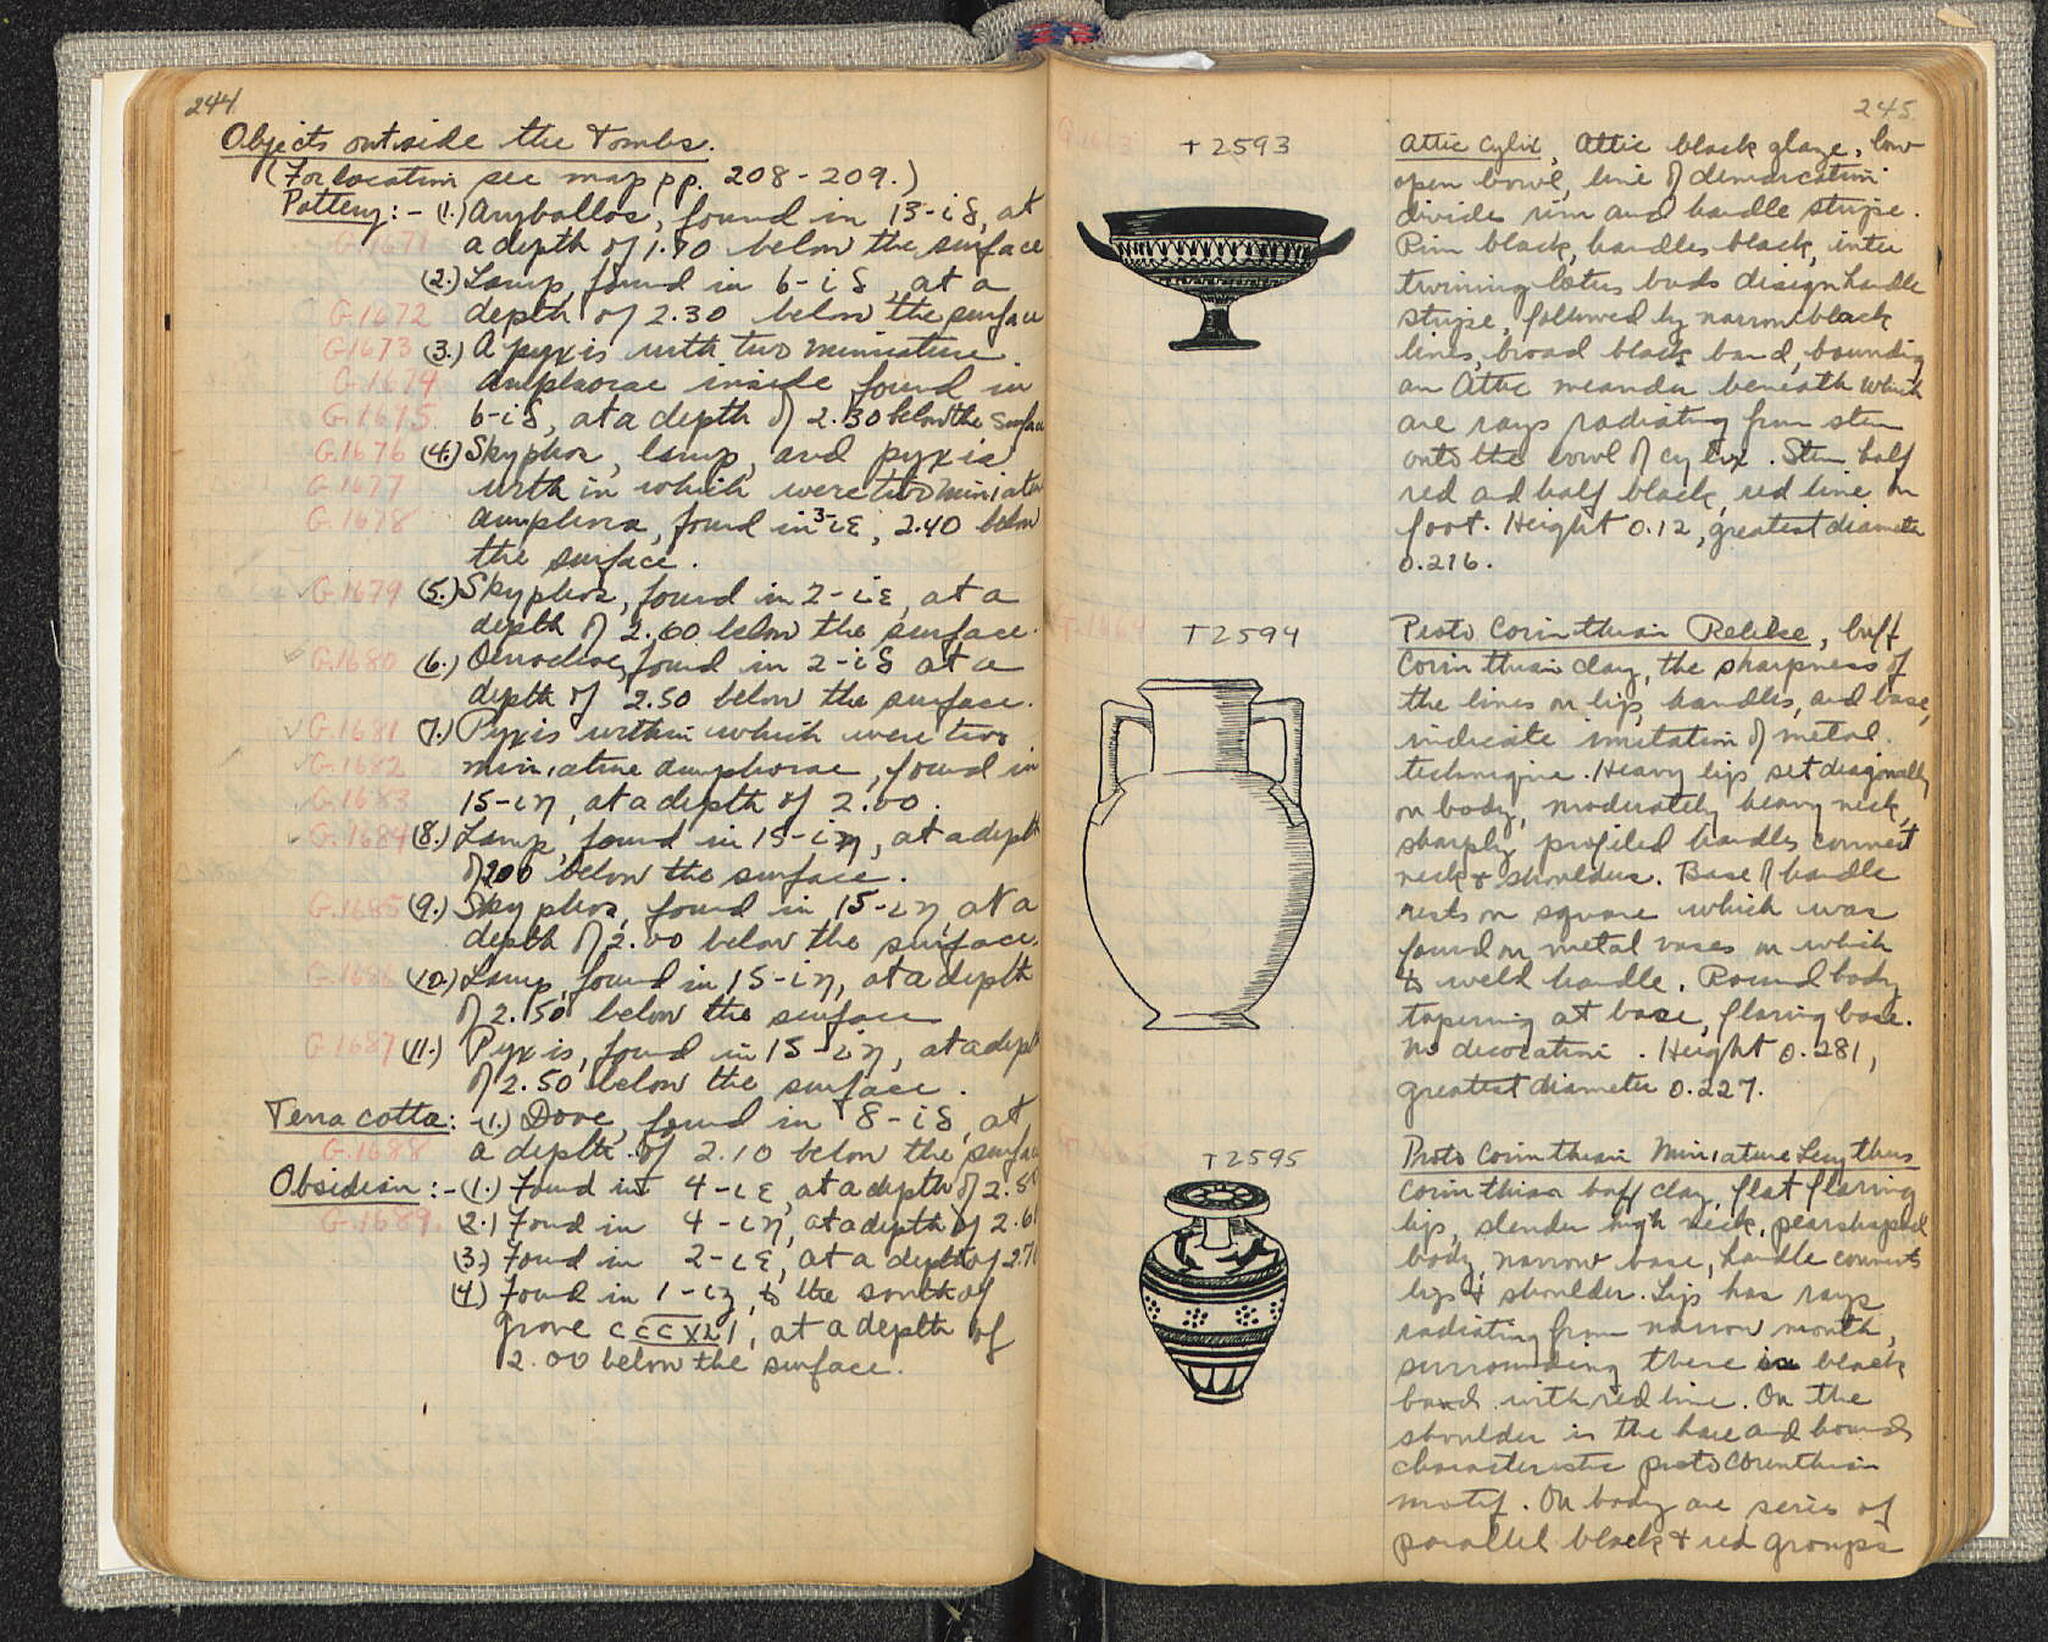 244
Objects outside the Tombs.
(For location see map pp. 208-209.)
Pottery: - (1.) Aryballos, found in 13-iδ, at
G.1671 a depth of 1.70 below the surface
(2.) Lamp, found in 6-iδ, at a
G.1672 depth of 2.30 below the surface
G.1673 (3.) A pyxis with two miniature
G.1674 amphorae inside found in
G.1675. 6-iδ, at a depth of 2.30 below the surface
G.1676 (4.) Skyphos, lamp, and pyxis
G.1677 with in which were two miniature
G.1678 amphora, found in 3-iε, 2.40 below
the surface.
G.1679 (5.) Skyphos, found in 2-iε, at a
depth of 2.60 below the surface.
G.1680 (6.) Oenochoe, found in 2-iδ at a
depth of 2.50 below the surface.
G.1681 (7.) Pyxis within which were two
G.1682 miniature amphorae, found in
G.1683 15-iη, at a depth of 2.00.
G.1684 (8.) Lamp, found in 15-iη, at a depth
of 200 below the surface.
G.1685 (9.) Skyphos, found in 15-iη, at a
depth of 2.00 below the surface.
G.1686 (10.) Lamp, found in 15-iη, at a depth
of 2.50 below the surface
G.1687 (11.) Pyxis, found in 15-iη, at a depth
of 2.50 below the surface.
Terra cotta: -(1.) Dove, found in 8-iδ, at
G.1688 a depth of 2.10 below the surface
Obsidian: -(1.) Found in 4-iε, at a depth of 2.50
G.1689. (2.) Found in 4-iη, at a depth of 2.60
(3.) Found in 2-iε, at a depth of 2.70
(4.) Found in 1-iζ, to the south of
grave CCCXLI, at a depth of
2.00 below the surface.
245
T2593
Attic Cylix, Attic black glaze, low
open bowl, line of demarcation
divides rim and handle stripe.
Rim black, handles black, inter
twining lotus buds design handle
stripe, followed by narrow black
lines, broad black band, bounding
an Attic meander beneath which
are rays radiating from stem
onto the bowl of cylix. Stem half
red and half black, red line on
foot. Height 0.12, greatest diameter
0.216.
T2594
Proto Corinthian Pelike, buff
Corinthian clay, the sharpness of
the lines on lip, handles, and base,
indicate imitation of metal
technique. Heavy lip set diagonally
on body, moderately heavy neck,
sharply profiled handles connect
neck & shoulders. Base of handle
rests on square which was
found on metal vases on which
to weld handle. Round body
tapering at base, flaring base.
No decoration. Height 0.281,
greatest diameter 0.227.
T2595
Proto Corinthian Miniature Lecythus
Corinthian buff clay, flat flaring
lip, slender high neck, pearshaped
body, narrow base, handle connects
lip & shoulder. Lip has rays
radiating from narrow mouth,
surrounding these is black
band with red line. On the
shoulder is the hare and hounds
characteristic proto Corinthian
motif. On body are series of
parallel black & red groups